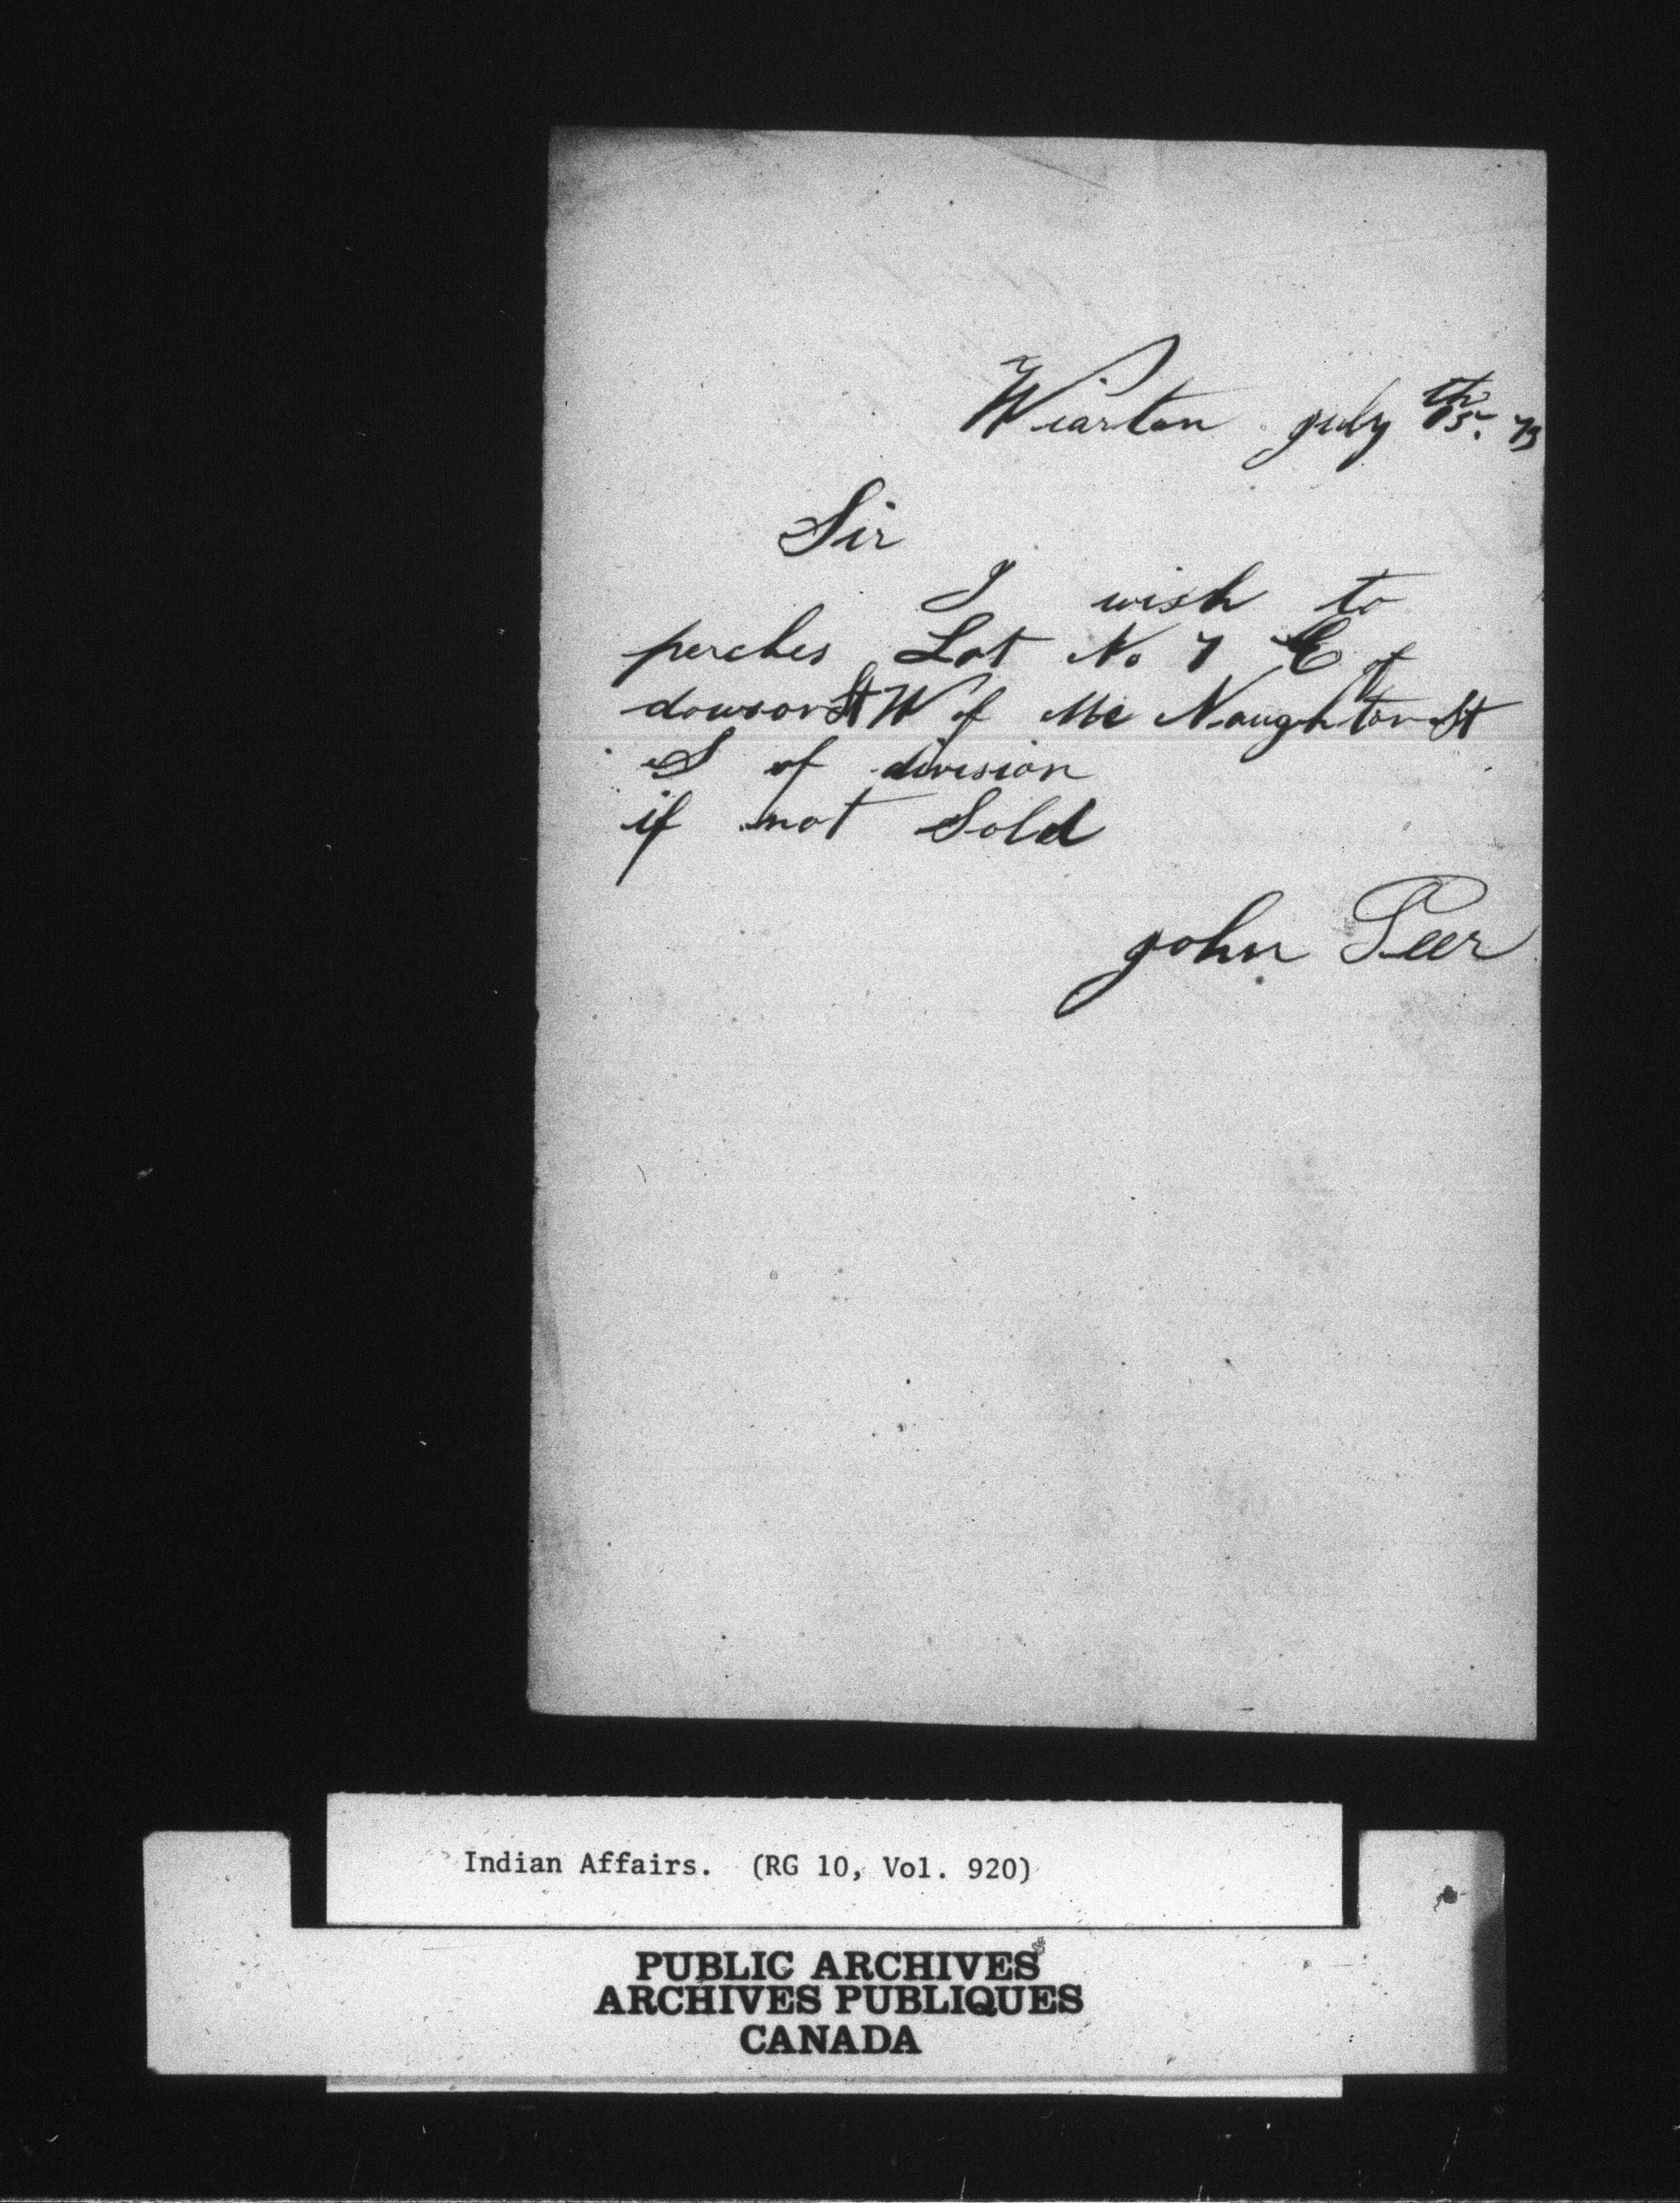 Wiarton july 15th. 73
Sir
I wish to
perches Lot No 7 E of
dowson St W of Mc Naughton St
S of division
if not Sold
john Peer
Indian Affairs. (RG 10, Vol. 920)
PUBLIC ARCHIVES
ARCHIVES PUBLIQUES
CANADA